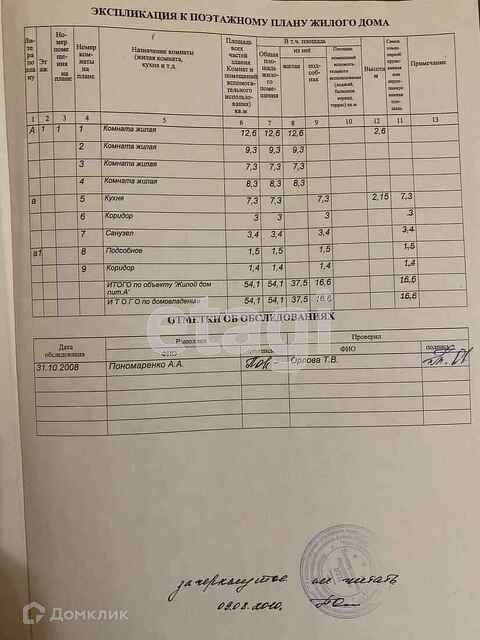 ЭКСПЛИКАЦИЯ К ПОЭТАЖНОМУ ПЛАНУ ЖИЛОГО ДОМА
Литера по плану | Этаж | Номер помещения на плане | Номер комнаты на плане | Назначение комнаты (жилая комната, кухня и т.п. | Площадь всех частей здания Комнат и помещений вспомогательного использования) кв.м | В т.ч. площадь | Общая площадь жилого помещения | из неё | жилая | подсобная | Высота | Примечание
1 2 3 4 5 6 7 8 9 10 12 11 13
А 1 1 1 Комната жилая 12,6 12,6 12,6 2,6
2 Комната жилая 9,3 9,3 9,3
3 Комната жилая 7,3 7,3 7,3
4 Комната жилая 8,3 8,3 8,3
а 5 Кухня 7,3 7,3 7,3 2,15 7,3
6 Коридор 3 3 3 3
7 Санузел 3,4 3,4 3,4 3,4
а1 8 Подсобное 1,5 1,5 1,5 1,5
9 Коридор 1,4 1,4 1,4 1,4
ИТОГО по объекту 'Жилой дом лит.А' 54,1 54,1 37,5 16,6 16,6
И Т О Г О по домовладению 54,1 54,1 37,5 16,6 16,6
etagi
ОТМЕТКИ ОБ ОБСЛЕДОВАНИЯХ
Дата обследования | Выполнил | Проверил
ФИО | подпись | ФИО | подпись
31.10.2008 Пономаренко А.А. Орлова Т.В.
зачеркнутое не читать
09.08.2010.
Домклик